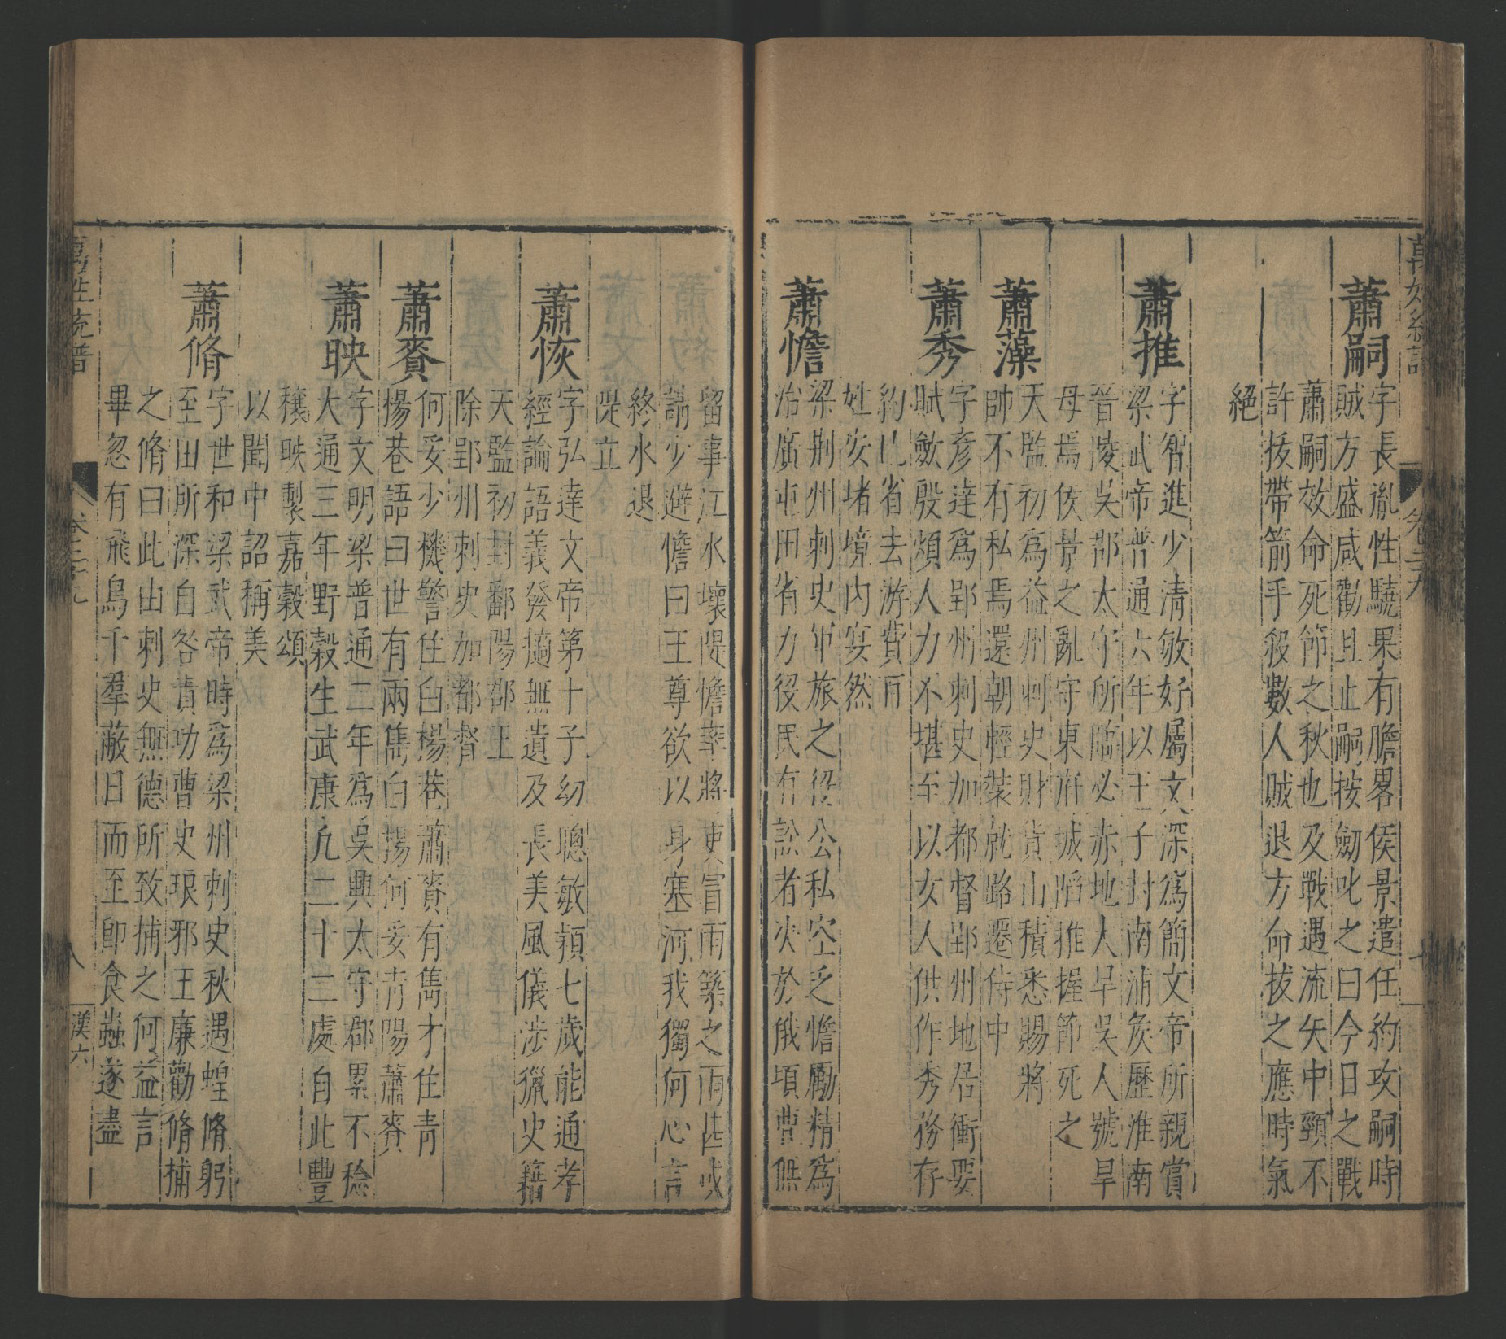 萬姓統譜
卷二十九
蕭嗣
字長胤性驍果有膽畧侯景遣任約攻嗣時
賊方盛咸勸且止嗣按劒叱之曰今日之戰
蕭嗣效命死節之秋也及戰遇流矢中頸不
許拔帶箭手殺數人賊退方命拔之應時氣
絕
蕭推
字智進少清敏好屬文深爲簡文帝所親賞
梁武帝普通六年以王子封南浦矦歷淮南
晉陵吳郡太守所臨必赤地大旱吳人號旱
母焉侯景之亂守東府城陷推握節死之
蕭藻
天監初爲益州刺史財貨山積悉賜將
帥不有私焉還朝輕裝就路遷侍中
蕭秀
字彥達爲郢州刺史加都督郢州地居衝要
賦斂殷煩人力不堪至以女人供作秀務存
約己省去游費百
姓安堵境内晏然
蕭憺
梁荆州刺史軍旅之後公私空乏憺勵精爲
治廣屯田省力役民有訟者决於俄頃曹無
留事江水壞隄憺率將吏冒雨築之雨甚或
請少避憺曰王尊欲以身塞河我獨何心言
終水退
隄立
蕭恢
字弘達文帝第十子幼聰敏頴七歲能通孝
經論語義發擿無遺及長美風儀涉獵史籍
天監初封鄱陽郡王
除郢州刺史加都督
蕭賚
何妥少機警住白楊巷蕭賚有雋才住青
揚巷語曰世有兩雋白楊何妥青陽蕭賚
蕭映
字文明梁普通二年爲吳興太守郡累不稔
大通三年野穀生武康凡二十二處自此豐
穰映製嘉穀頌
以聞中詔稱美
蕭脩
字世和梁武帝時爲梁州刺史秋遇蝗脩躬
至田所深自咎責功曹史琅邪王廉勸脩捕
之脩曰此由刺史無德所致捕之何益言
畢忽有飛鳥千羣蔽日而至卽食蟲遂盡
萬姓統譜
卷二十九
八
漢六